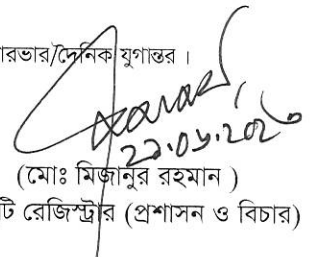 রভার/দৈনিক যুগান্তর ।
(মোঃ মিজানুর রহমান )
টি রেজিস্ট্রার (প্রশাসন ও বিচার)